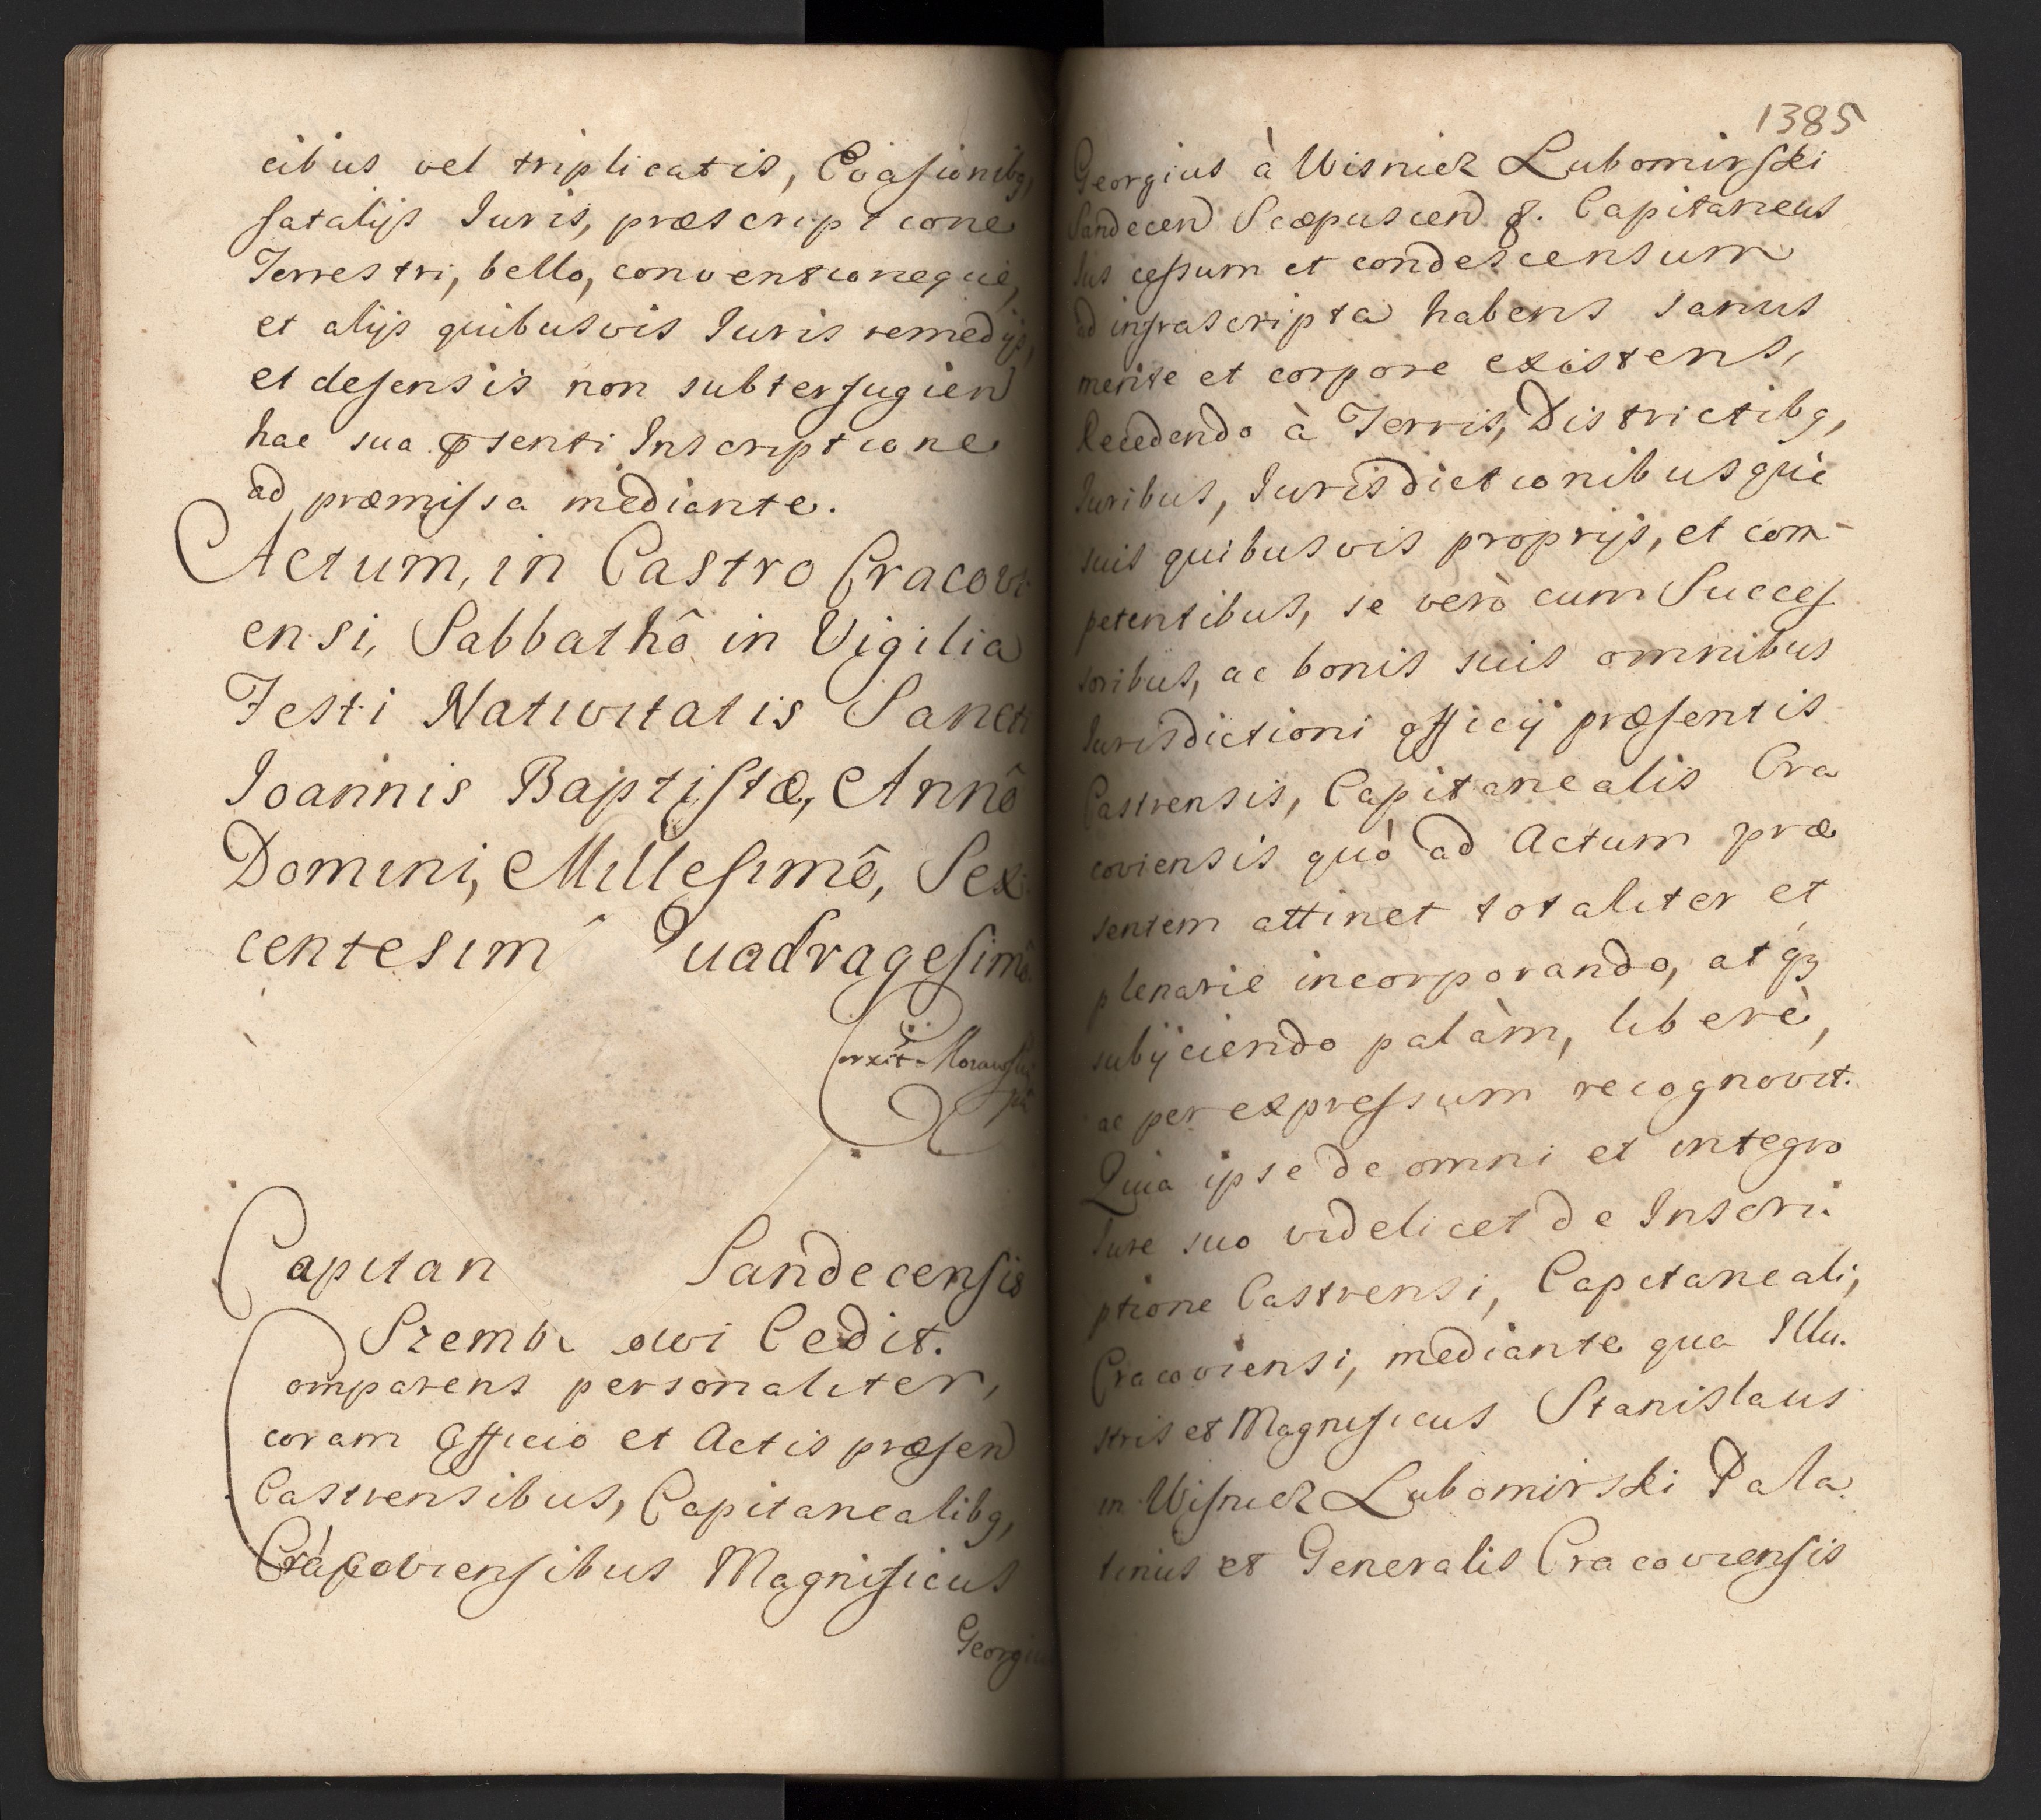 cibus vel triplicatis, Evasionibq,
fatalijs Iuris, præscriptione
Terrestri, bello, conventioneque,
et alijs quibusvis Iuris remedijs,
et defensis non subterfugien
hac sua psenti Inscriptione
ad præmissa mediante.
Actum, in Castro Cracovi
ensi, Sabbathô in Vigilia
Festi Nativitatis Sancti
Ioannis Baptistæ, Annô
Domini, Millesimô, Sex
centesim Quadragesimô
Capitan Sandecensis
Szemb owi Cedit.
Comparens personaliter,
coram Officio et Actis præsen
Castrensibus, Capitanealibq,
Cracoviensibus Magnificus
Georgiu
1385
Georgius à Wisnicz Lubomirski
Sandecen Scæpuscen &. Capitaneus
Ius cessum et condescensum
ad infrascripta habens sanus
mente et corpore existens,
Recedendo à Terris, Districtibq,
Iuribus, Iurisdictionibusque
suis quibusvis proprijs, et com-
petentibus, se verò cum Succes
soribus, ac bonis suis omnibus
Iurisdictioni officij præsentis
Castrensis, Capitanealis Cra
coviensis quò ad Actum præ
sentem attinet totaliter et
plenarie incorporando, atqz
subijciendo palàm, liberè,
ac per expressum recognovit.
Quia ipse de omni et integro
Iure suo videlicet de Inscri-
ptione Castrensi, Capitaneali,
Cracoviensi, mediante qua Illu-
stris et Magnificus Stanislaus
in Wisnicz Lubomirski Pala
tinus et Generalis Cracoviensis